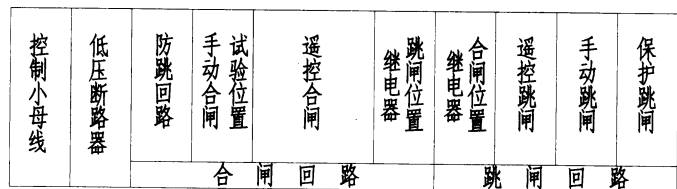 控制小母线
低压断路器
防跳回路
试验位置
手动合闸
遥控合闸
跳闸位置
继电器
合闸位置
继电器
遥控跳闸
手动跳闸
保护跳闸
合闸回路
跳闸回路